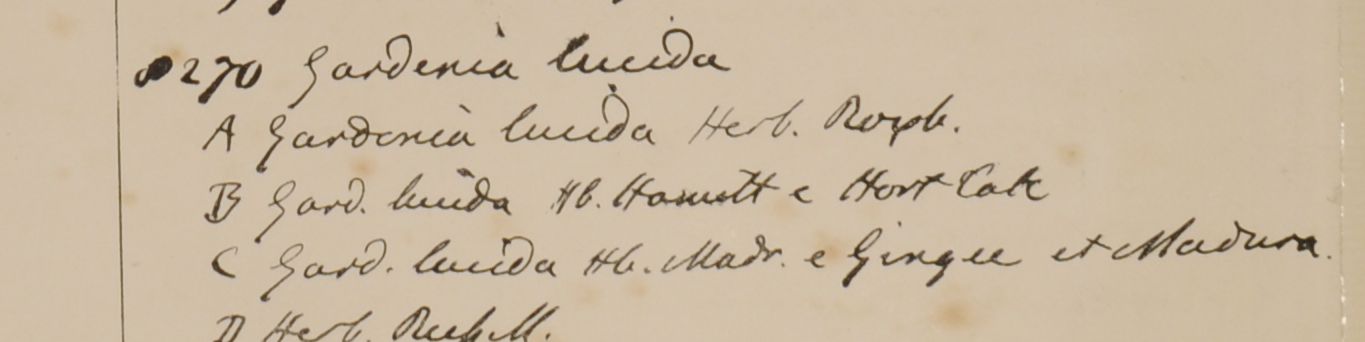 8270 Gardenia lucida
A Gardenia lucida Herb. Roxb.
B Gard. lucida Hb. Hamilt e Hort Calc
C Gard. lucida Hb. Madr. e Gingee et Madura.
D Herb. Russell.